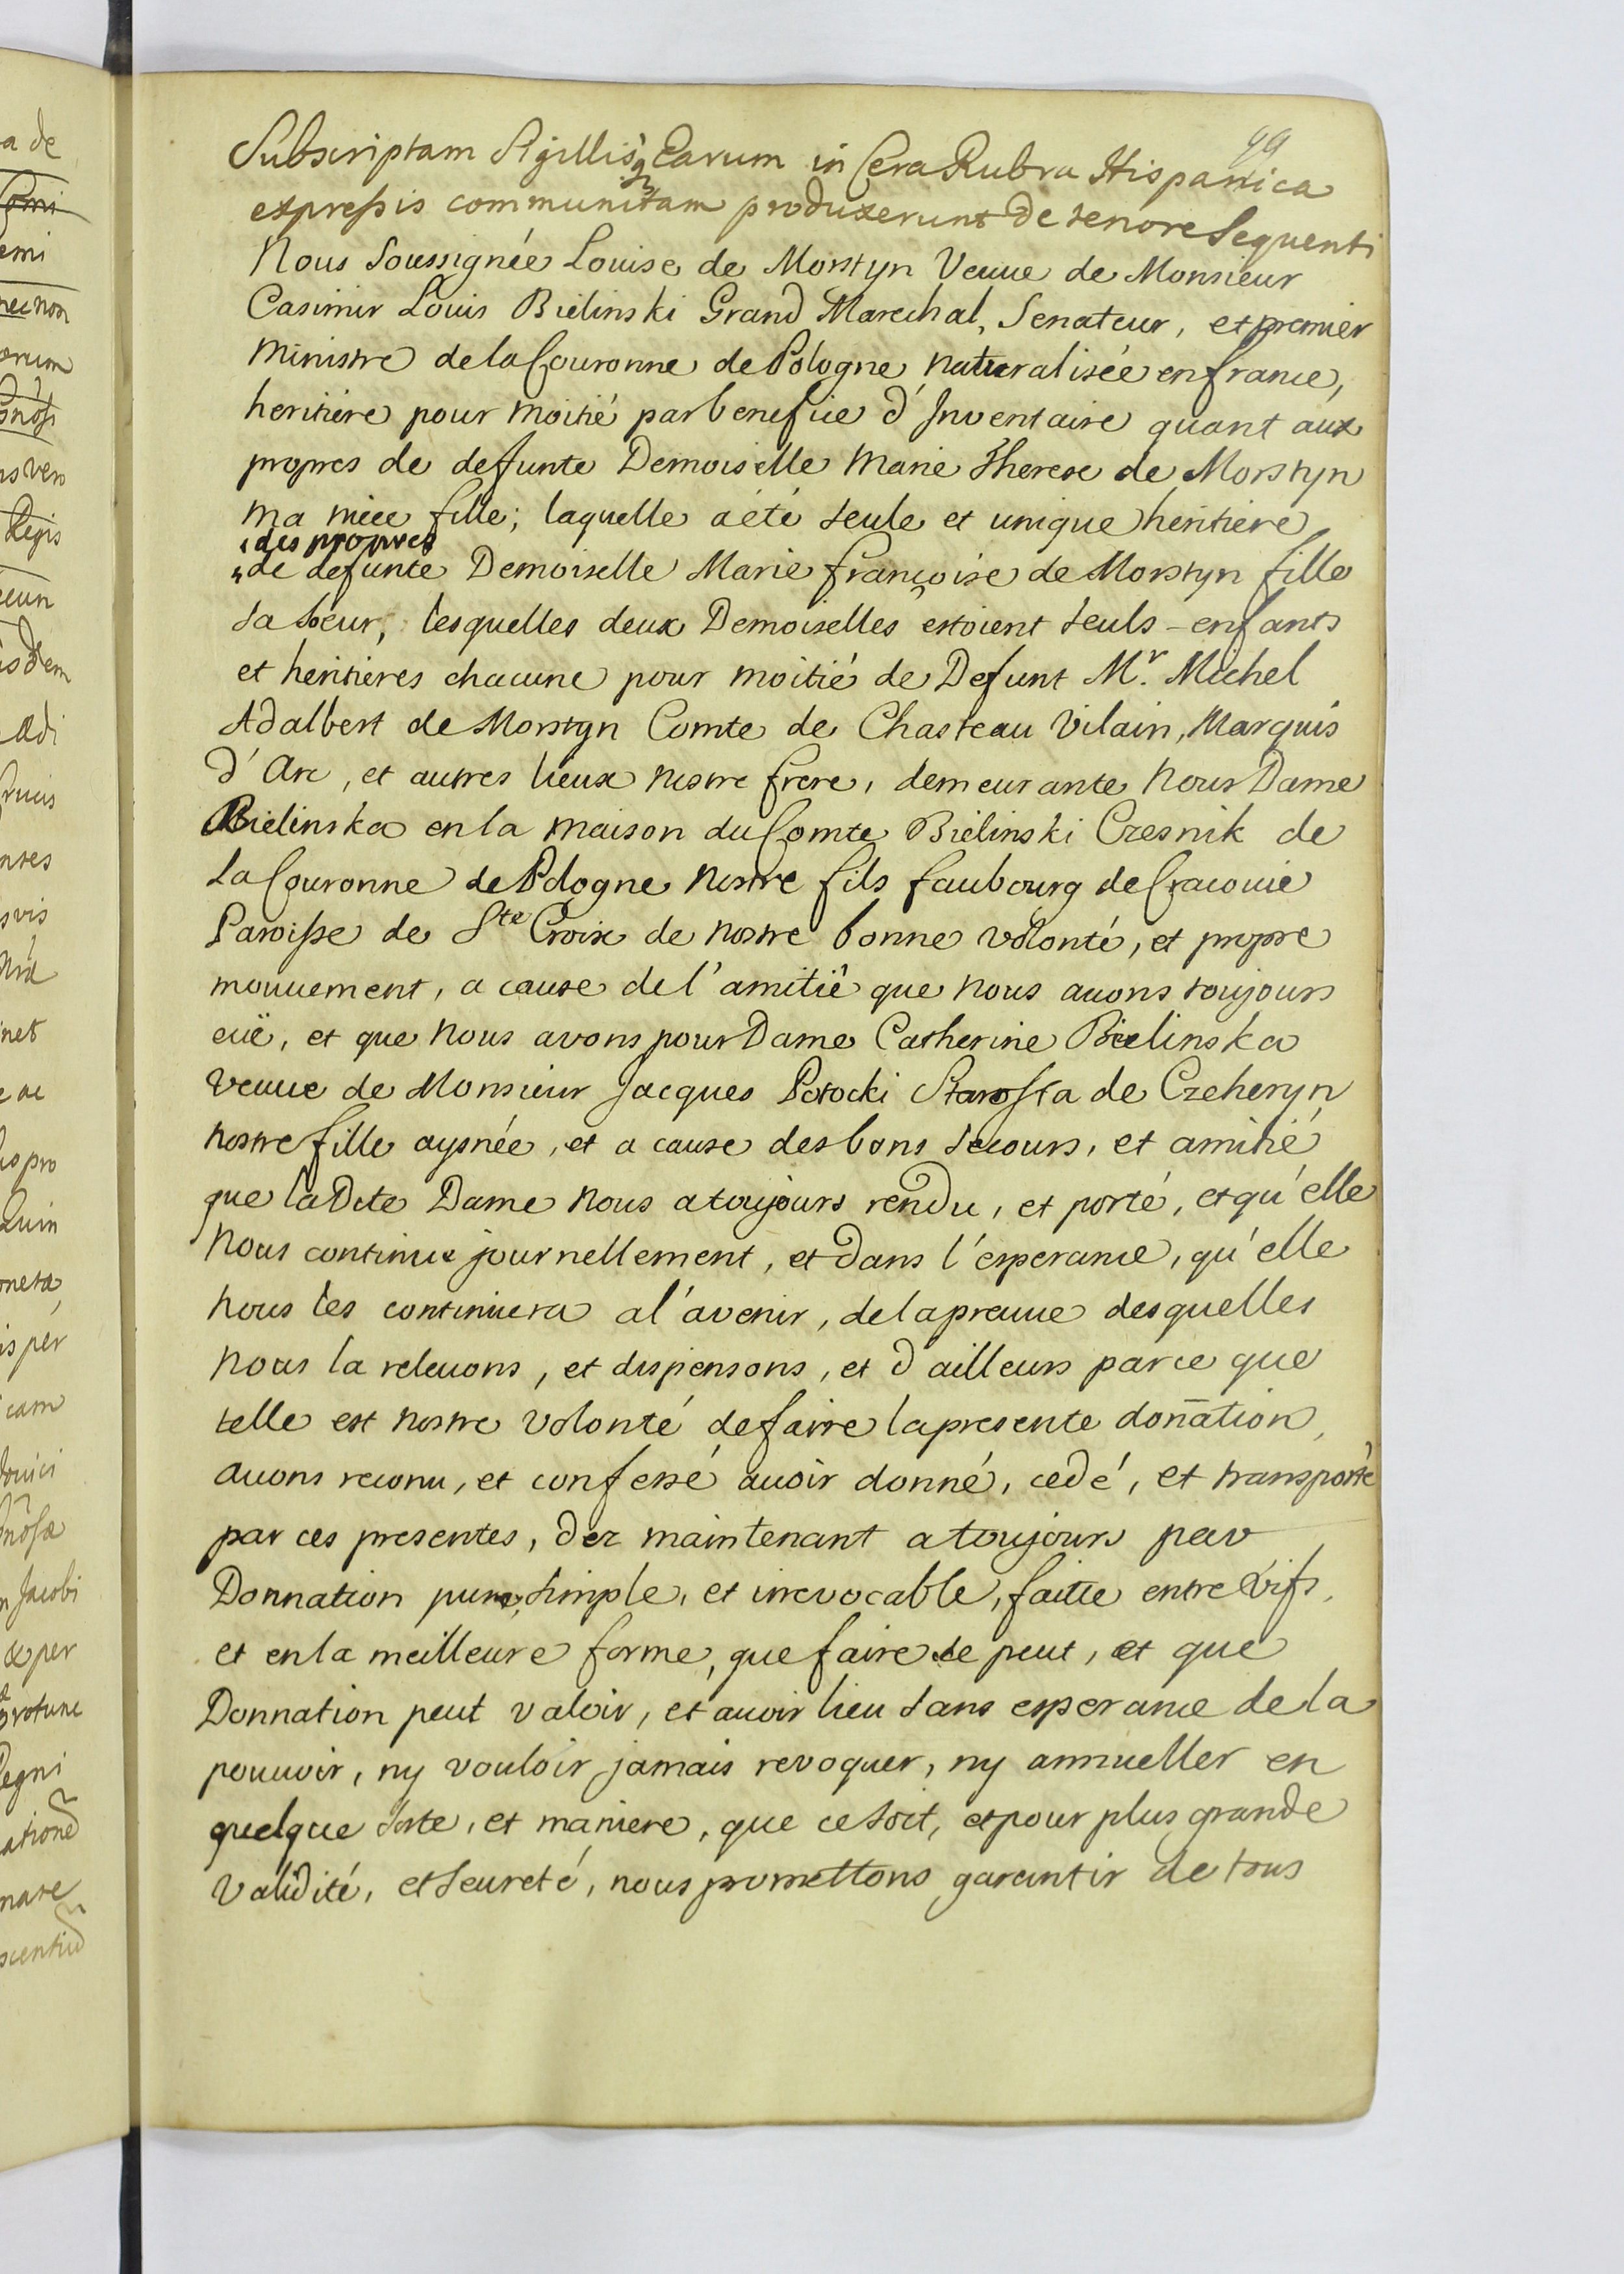 99
Subscriptam Sigillisq Earum in Cera Rubra Hispanica
expressis communitam produxerunt de tenore Sequenti
Nous Soussignée Louise de Morstyn Veuue de Monsieur
Casimir Louis Bielinski Grand Marechal, Senateur, et premier
Ministre de la Couronne de Pologne naturalisée en france,
heritiére pour moitié par benefice d'Inventaire quant aux
propres de defunte Demoiselle Marie Therese de Morstyn
ma niéce fille; laquelle a été seule et unique heritiere
des propres
de defunte Demoiselle Marie françoise de Morstyn fille
sa soeur, lesquelles deux Demoiselles estoient seuls-enfants
et heritiéres chacune pour moitié de Defunt Mr. Michel
Adalbert de Morstyn Comte de Chasteau Vilain, Marquis
d'Arc, et autres lieux nostre frere, demeurante Nous Dame
Bielinska en la maison du Comte Bielinski Czesnik de
La Couronne de Pologne nostre fils faubourg de Cracouie
Paroisse de Ste Croix de nostre bonne volonté, et propre
mouuement, a cause de l'amitié que nous auons toujours
eüe, et que nous avons pour Dame Catherine Bielinska
veuue de Monsieur Jacques Potocki Starosta de Czeheryn
nostre fille aysnée, et a cause des bons secours, et amitié
que la Dite Dame nous a toujours rendu, et porté, et qu'elle
nous continue journellement, et dans l'esperance, qu'elle
nous les continuera a l'avenir, de la preuue desquelles
nous la releuons, et dispensons, et d'ailleurs parce que
telle est nostre volonté de faire la presente doñation,
auons reconu, et confessé auoir donné, cedé, et transporté
par ces presentes, dez maintenant a toujours par
Donnation pure, simple, et irrevocable, faitte entre Vifs,
et en la meilleure forme, que faire se peut, et que
Donnation peut valoir, et auoir lieu sans esperance de la
pouuoir, ny vouloir jamais revoquer, ny annueller en
quelque sorte, et maniere, que ce soit, et pour plus grande
validité, et seureté, nous promettons garentir de tous